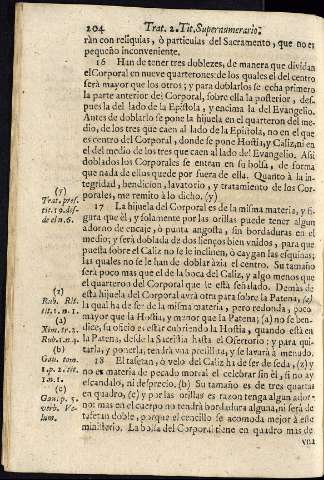 204 Trat. 2. Tit. Supernumerario.
ràn con reliquias, ò particulas del Sacramento, que no es
pequeño inconveniente.
16 Han de tener tres doblezes, de manera que dividan
el Corporal en nueve quarterones: de los quales el del centro
serà mayor que los otros; y para doblarlos se echa primero
la parte anterior del Corporal, sobre ella la posterior, des-
pues la del lado de la Epistola, y encima la del Evangelio.
Antes de doblarlo se pone la hijuela en el quarteron del me-
dio, de los tres que caen al lado de la Epistola, no en el que
es centro del Corporal, donde se pone Hostia, y Caliz, ni en
el del medio de los tres que caen al lado del Evangelio. Assi
doblados los Corporales se entran en su bolsa, de forma
que nada de ellos quede por fuera de ella. Quanto à la in-
tegridad, bendicion, lavatorio, y tratamiento de los Cor-
porales, me remito à lo dicho. (y)
17 La hijuela del Corporal es de la misma materia, y fi-
gura que èl, y solamente por las orillas puede tener algun
adorno de encaje, ò punta angosta, sin bordaduras en el
medio; y serà doblada de dos lienços bien unidos, para que
puesta sobre el Caliz no se le inclinen, ò caygan las esquinas;
las quales no se le han de doblar àzia el centro. Su tamaño
serà poco mas que el de la boca del Caliz, y algo menos que
el quarteron del Corporal que le està señalado. Demàs de
esta hijuela del Corporal avrà otra para sobre la Patena, (z)
la qual ha de ser de la misma materia, pero redonda, poco
mayor que la Hostia, y menor que la Patena; (a) no se ben-
dice, su oficio es estar cubriendo la Hostia, quando està en
la Patena, desde la Sacristia hasta el Ofertorio; y para qui-
tarla, y ponerla, tendrà una presillita, y se lavarà à menudo.
18 El tafetan, ò velo del Caliz ha de ser de seda, (z) y
no es materia de pecado mortal el celebrar sin èl, si no ay
escandalo, ni desprecio. (b) Su tamaño es de tres quartas
en quadro, (c) y por las orillas es razon tenga algun ador-
no: mas en el cuerpo no tendrà bordadura alguna, ni serà de
tafetan doble, porque el sencillo se acomoda mejor à este
ministerio. La bolsa del Corporal tiene en quadro mas de
vna
(y)
Trat. pres.
tit. 19. dis-
de el n. 6.
(z)
Rub. Rit.
tit. 1. n. 1.
(a)
Xim. tr. 2.
Rub. 1. n. 4.
(b)
Gav. tom.
1. p. 2. tit.
1. n. 1.
(c)
Gav. p. 5.
verb. Ve-
lum.